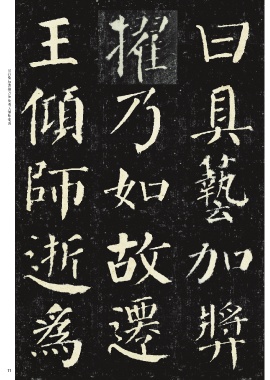 曰具藝加獎
擢乃如故遷
王傾師逝爲